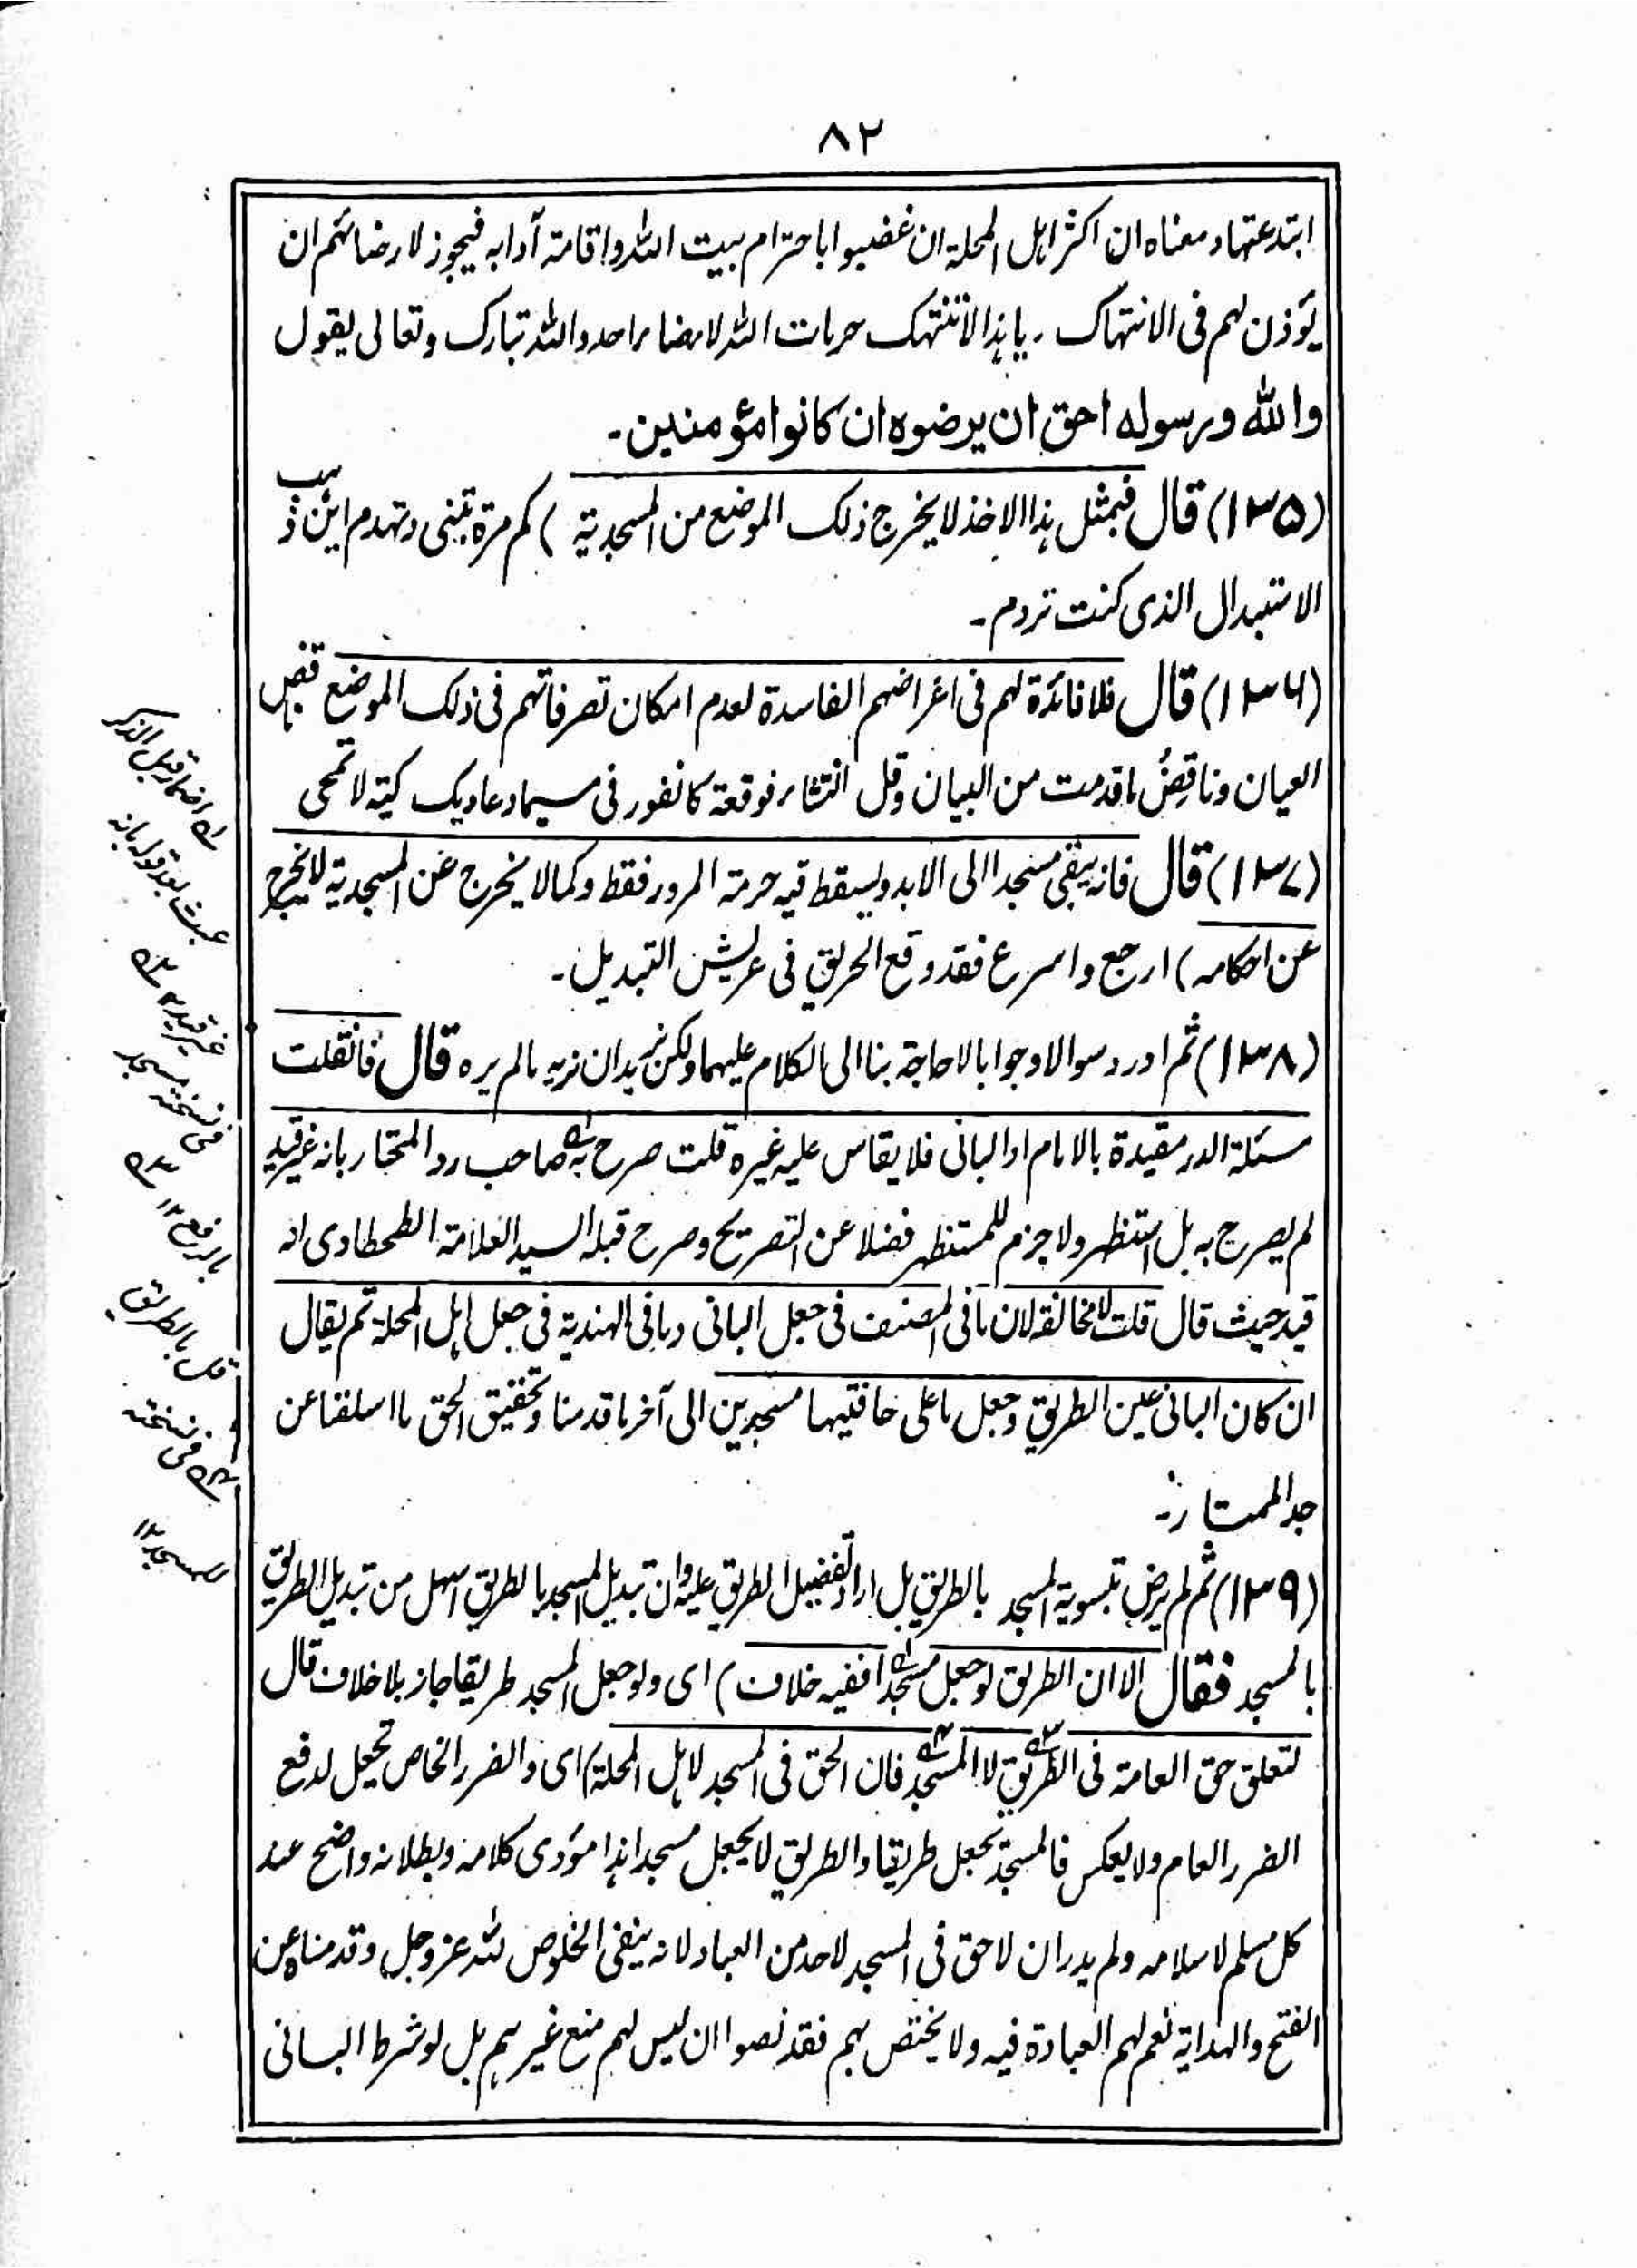 ۸۲
ابتدعتها ومعناه ان اكثر اہل المحلة ان غضبوا باحترام بيت اللہ واقامة آدابه فيجوز لارضائهم ان
يؤذن لهم فى الانتهاك ۔ يا ہذا لا تنتهك حرمات اللہ لارضاء احد واللہ تبارك وتعالى يقول
والله ورسوله احق ان يرضوه ان كانوا مؤمنين۔
(۱۳۵) قال فبمثل ہذا الاخذ لا يخرج ذلك الموضع من المسجدية) كم مرة تبنى وتهدم اين ذهب
الاستبدال الذى كنت تروم۔
(۱۳۶) قال فلا فائدة لهم فى اغراضهم الفاسدة لعدم امكان تصرفاتهم فى ذلك الموضع
العيان وناقض ما قدمت من البيان وقل انتشار فوقعة كانفور فى سيماد عاديك كية لا تمحى
(۱۳۷) قال فانه يبقى مسجدا الى الابد ويسقط فيه حرمة المرور فقط وكما لا يخرج عن المسجدية لا يخرج
عن احكامه) ارجع واسرع فقد وقع الحريق فى عريش التبديل۔
(۱۳۸) ثم اورد سوالا وجوابا لا حاجة بنا الى الكلام عليهما ولكن نريد ان نريه ما لم يره قال فانقلت
مسئلة الدر مقيدة بالامام او البانى فلا يقاس عليه غيره قلت صرح به صاحب رد المحتار بانه غير قيد
لم يصرح به بل استظهر ولا جزم للمستظهر فضلا عن التصريح وصرح قبله السيد العلامة الطحطاوى انه
قيد حيث قال قلت لا مخالفة لان ما فى المصنف فى جعل البانى وما فى الهندية فى جعل اہل المحلة ثم يقال
ان كان البانى عين الطريق وجعل ما على حافتيها مسجدين الى آخر ما قدمنا وتحقيق الحق ما اسلفنا عن
جد الممتار۔
(۱۳۹) ثم لم يرض بتسوية المسجد بالطريق بل اراد تفضيل الطريق عليه وان تبديل المسجد بالطريق اسهل من تبديل الطريق
بالمسجد فقال الا ان الطريق لو جعل مسجدا ففيه خلاف) اى ولو جعل المسجد طريقا جاز بلا خلاف قال
لتعلق حق العامة فى الطريق لا المسجد فان الحق فى المسجد لاہل المحلة) اى والضرر الخاص تحمل لدفع
الضرر العام ولا يعكس فالمسجد يجعل طريقا والطريق لا يجعل مسجدا ہذا مؤدى كلامه وبطلانه واضح عند
كل مسلم لاسلامه ولم يدر ان لا حق فى المسجد لاحد من العباد لانه ينفى الخلوص للہ عز وجل وقدمناه عن
الفتح والهداية نعم لهم العبادة فيه ولا يختص بهم فقد نصوا ان ليس لهم منع غيرہم بل لو شرط البانى
لہ اضمار قبل الذكر
عبث لبعد قوله بانه
غير قيد ۱۲
فى نسخة مسجد
بالرفع ۱۲
بالطريق
فى نسخة
للمسجد ۱۲